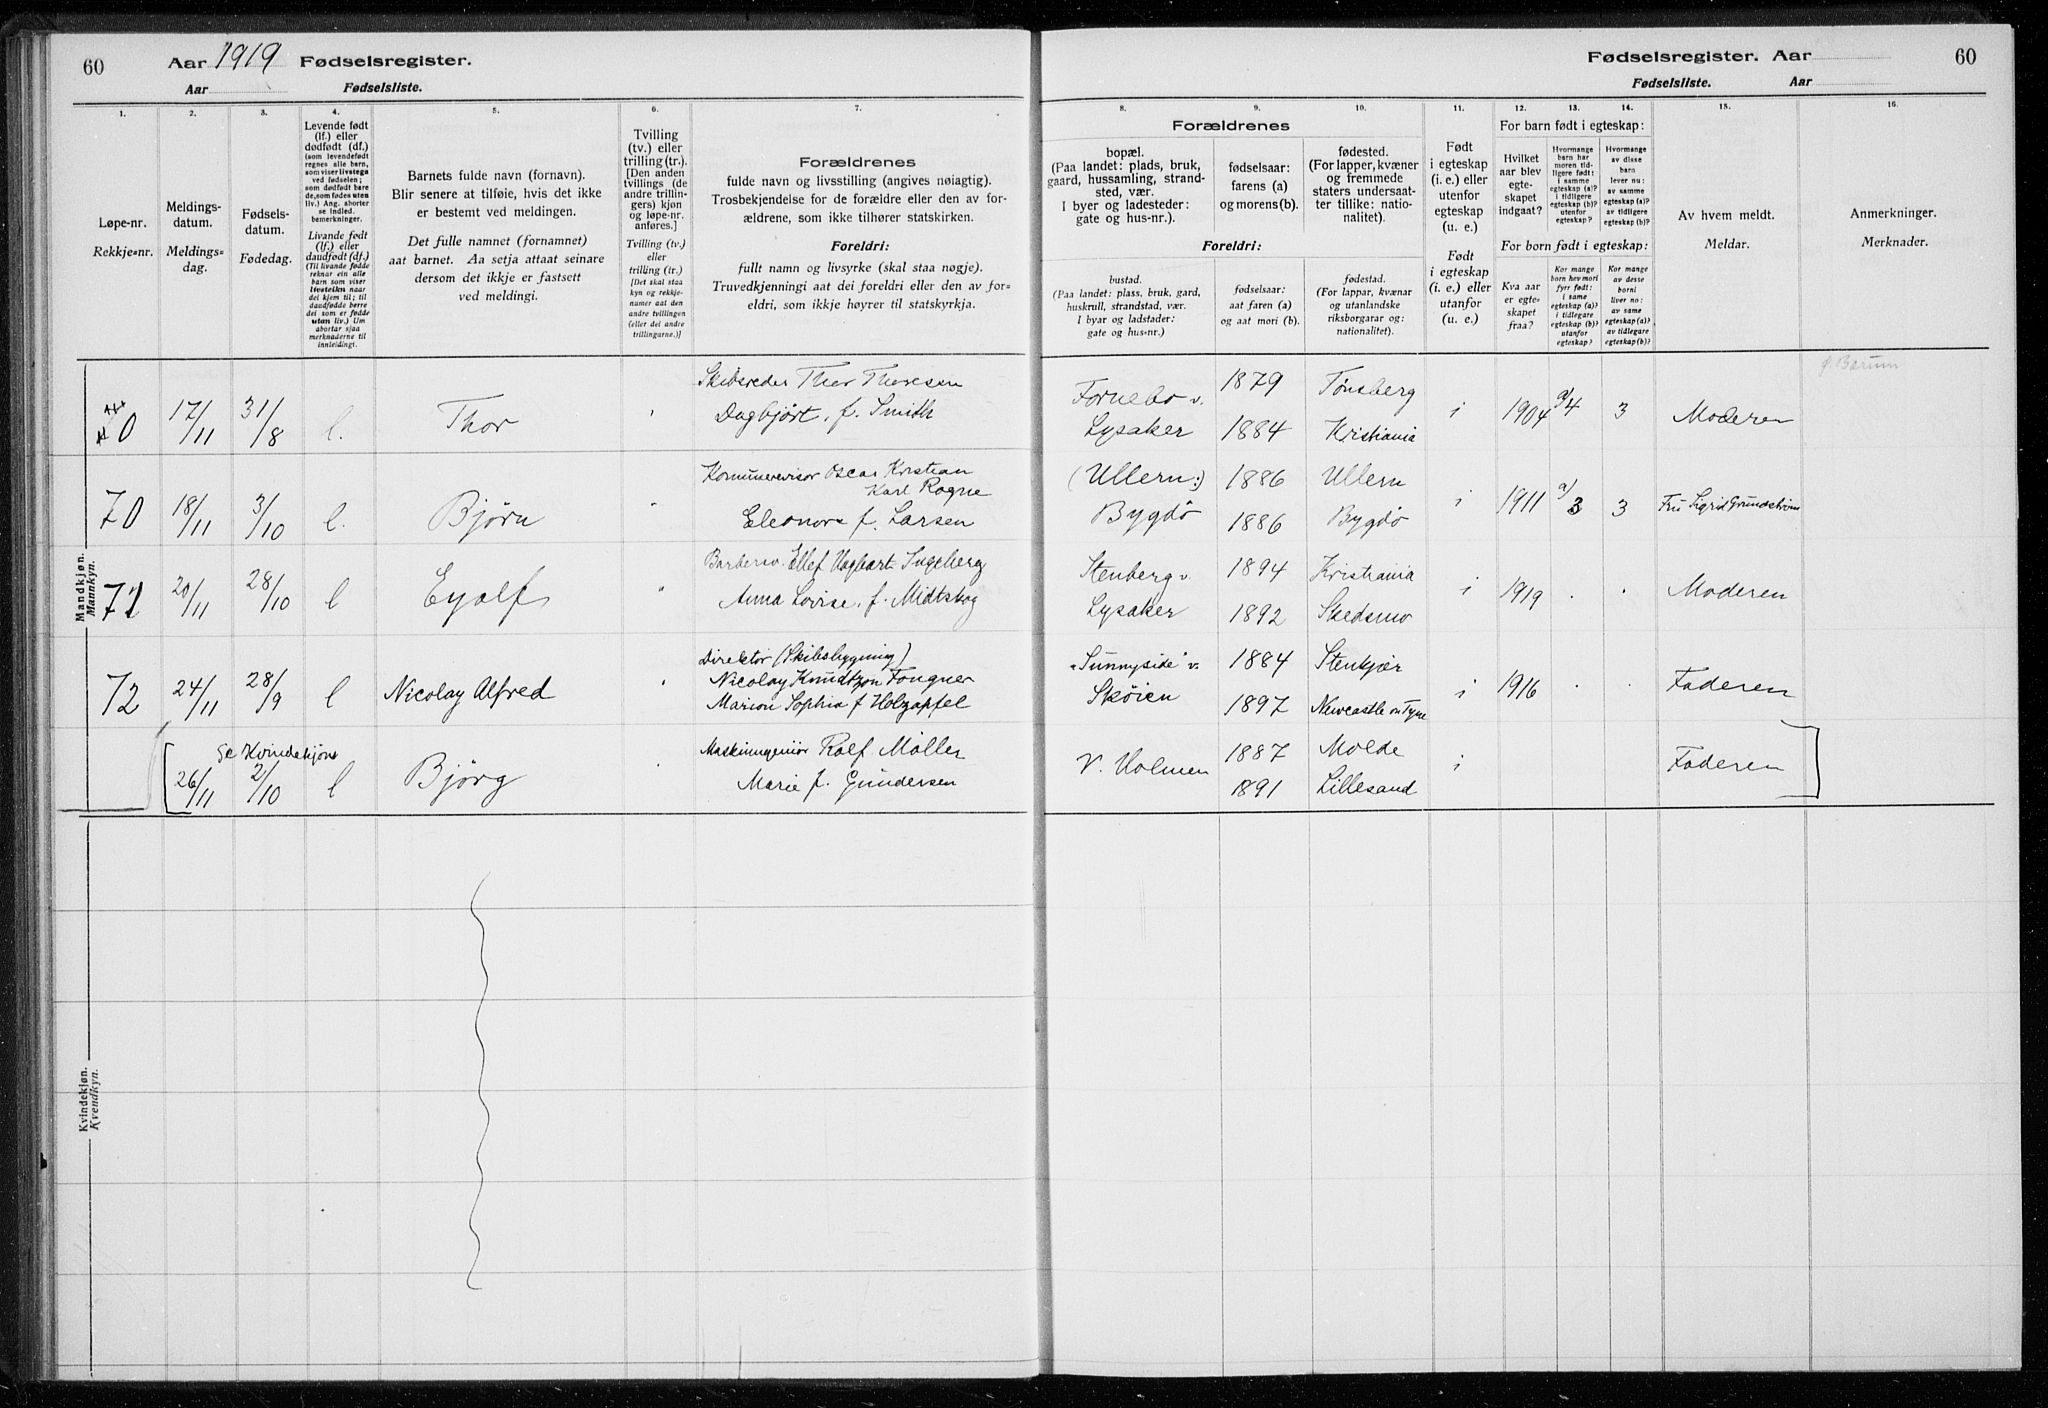 60
Aar 1919 Fødselsregister.
Aar Fødselsliste.
Fødselsregister. Aar
Fødselsliste. Aar
60
1.
Løpe-nr.
Rekkje-nr.
2.
Meldings-
datum.
Meldings-
dag.
3.
Fødsels-
datum.
Fødedag.
4.
Levende født
(lf.) eller
dødfødt (df.)
(som levendefødt
regnes alle barn,
som viser livstegn
ved fødselen;
som dødfødt bare
de, som fødes uten
liv.) Ang. aborter
se indled.
bemerkninger.
Livande født
(lf.) eller
daudfødt (df.)
(Til livande fødde
reknar ein alle
barn som viser
livsteikn naar
dei kjem til; til
daudfødde berre
dei som er fødde
utan liv.) Um
abortar sjaa
merknaderne til
innleidingi.
5.
Barnets fulde navn (fornavn).
Blir senere at tilføie, hvis det ikke
er bestemt ved meldingen.
Det fulle namnet (fornamnet)
aat barnet. Aa setja attaat seinare
dersom det ikkje er fastsett
ved meldingi.
6.
Tvilling
(tv.) eller
trilling (tr.).
[Den anden
tvillings (de
andre trillin-
gers) kjøn
og løpe-nr.
anføres.]
Tvilling (tv.)
eller
trilling (tr.)
[Det skal staa
kyn og rekkje-
numer aat den
andre tvillingen
(eller dei andre
trillingarne.)]
7.
Forældrenes
fulde navn og livsstilling (angives nøiagtig).
Trosbekjendelse for de forældre eller den av for-
ældrene, som ikke tilhører statskirken.
Foreldri:
fullt namn og livsyrke (skal staa nøgje).
Truvedkjenningi aat dei foreldri eller den av for-
eldri, som ikkje høyrer til statskyrkja.
8.
9.
10.
Forældrenes
bopæl.
(Paa landet: plads, bruk,
gaard, hussamling, strand-
sted, vær.
I byer og ladesteder:
gate og hus-nr.).
fødselsaar:
farens (a)
og morens (b).
fødested.
(For lapper, kvæner
og fremmede
staters undersaat-
ter tillike: natio-
nalitet).
Foreldri:
bustad.
(Paa landet: plass, bruk, gard,
huskrull, strandstad, vær.
I byar og ladstader:
gate og hus-nr.)
fødselsaar:
aat faren (a)
og aat mori (b).
fødestad.
(For lappar, kvænar
og utanlandske
riksborgarar og:
nationalitet).
11.
Født
i egteskap
(i. e.) eller
utenfor
egteskap
(u. e.)
Født
i egteskap
(i. e.) eller
utanfor
(u. e.)
12.
13.
14.
For barn født i egteskap:
Hvilket
aar blev
egte-
skapet
indgaat?
Hvormange
barn har
moren tid-
ligere født:
i samme
egteskap (a)?
i tidligere
egteskap (b)?
utenfor
egteskap?
Hvormange
av disse
barn
lever nu:
av samme
egteskap (a)?
av tidligere
egteskap (b)?
For born født i egteskap:
Kva aar
er egte-
skapet
fraa?
Kor mange
born hev mori
fyrr født:
i same
egteskap (a)?
i tidlegare
egteskap (b)?
utanfor
egteskap?
Kor mange
av desse
borni
liver no:
av same
egteskap (a)?
av tidlegare
egteskap (b)?
15.
Av hvem meldt.
Meldar.
16.
Anmerkninger.
Merknader.
Mandkjøn.
Mannkyn.
0 17/11 31/8 l. Thor
Skibsreder Thor Thoresen
Dagbjørt, f. Smith
Fornebo v.
Lysaker
1879 Tønsberg
1884 Kristiania
i 1904 a/4 3 Moderen
Bærum
70 18/11 3/10 l. Bjørn
Kommunerevisor Oscar Kristian
Karl Rogne
Eleonora f. Larsen
(Ullern:)
Bygdö
1886 Ullern
1886 Bygdö
i 1911 a/3 3 Fru Sigrid Grundstrøm
71 20/11 28/10 l Eyolf
Barbersv. Ellef Hagbart Ingeberg
Anna Lovise, f. Midtskog
Stenberg v.
Lysaker
1894 Kristiania
1892 Skedsmo
i 1919 . . Moderen
72 24/11 28/9 l Nicolay Alfred
Direktör (Skibsbygning)
Nicolay Knudtzon Fougner
Marion Sophia f Holzapfel
"Sunnyside" v.
Sköien
1884 Stenkjær
1897 Newcastle on Tyne
i 1916 . . Faderen
Se Kvindekjön
26/11 2/10 l Bjørg
Maskiningeniör Rolf Möller
Marie f. Gundersen
V. Holmen
1887 Molde
1891 Lillesand
i Faderen
Kvindekjøn.
Kvendkyn.